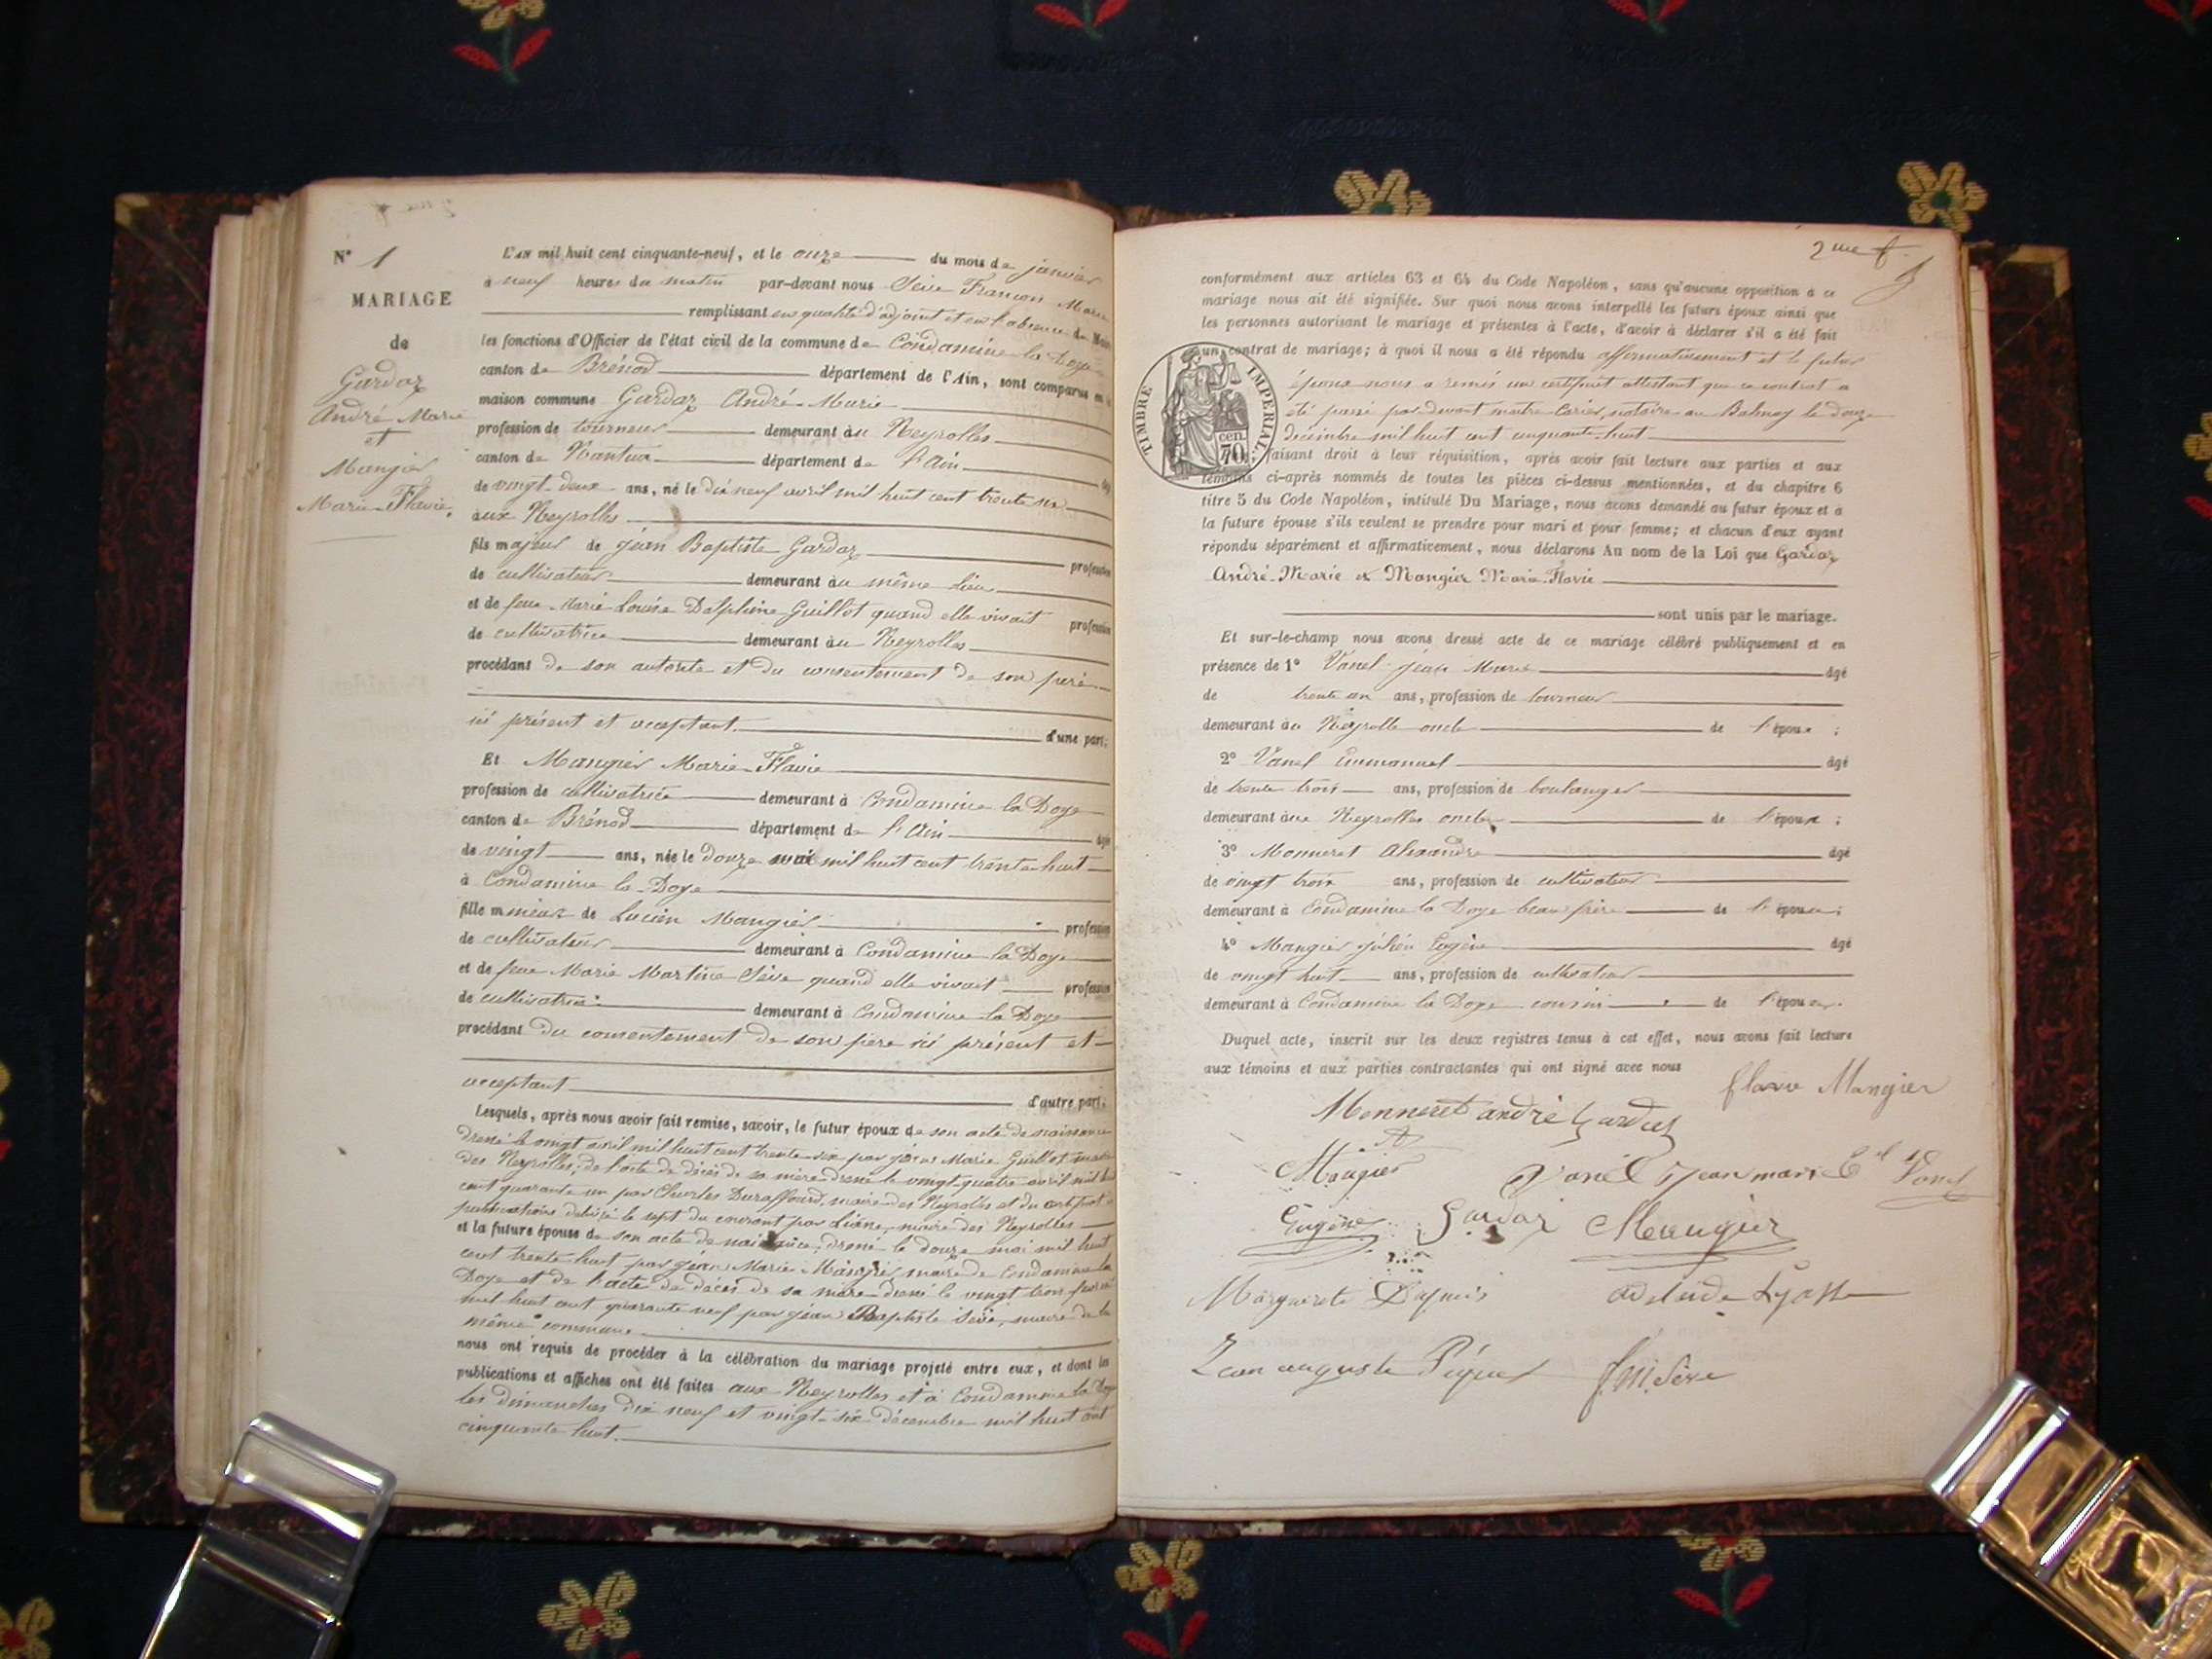 N° 1
MARIAGE
de
Gardaz
André-Marie
et
Mangier
Marie-Flavie.
L'AN mil huit cent cinquante-neuf, et le onze du mois de janvier
à neuf heures du matin par-devant nous Sève François Marie
remplissant en qualité d'adjoint et en l'absence du Maire
les fonctions d'Officier de l'état civil de la commune de Condamine la Doye
canton de Brénod département de l'Ain, sont comparus en la
maison commune Gardaz André-Marie
profession de tourneur demeurant au Neyrolles
canton de Nantua département de l'Ain âgé
de vingt-deux ans, né le dix neuf avril mil huit cent trente six
aux Neyrolles
fils majeur de Jean Baptiste Gardaz profession
de cultivateur demeurant au même lieu
et de feue Marie Louise Delphine Guillot quand elle vivait profession
de cultivatrice demeurant au Neyrolles
procédant de son autorité et du consentement de son père
ici présent et acceptant. d'une part;
Et Mangier Marie-Flavie
profession de cultivatrice demeurant à Condamine la Doye
canton de Brénod département de l'Ain âgé
de vingt ans, née le douze mai mil huit cent trente-huit
à Condamine la Doye
fille mineur de Lucien Mangier profession
de cultivateur demeurant à Condamine la Doye
et de feue Marie Martine Sève quand elle vivait profession
de cultivatrice demeurant à Condamine la Doye
procédant du consentement de son père ici présent et
acceptant d'autre part.
Lesquels, après nous avoir fait remise, savoir, le futur époux de son acte de naissance
dressé le vingt avril mil huit cent trente-six par Marie Guillot maire
des Neyrolles; de l'acte de décès de sa mère dressé le vingt quatre avril mil huit
cent quarante un par Charles Duraffourd, maire des Neyrolles et du certificat de
publications délivré le sept du courant par Liane, maire des Neyrolles
et la future épouse de son acte de naissance, dressé le douze mai mil huit
cent trente huit par Jean Marie Mangier, maire de Condamine la
Doye et de l'acte de décès de sa mère dressé le vingt trois février
mil huit cent quarante neuf par Jean Baptiste Sève, maire de la
même commune
nous ont requis de procéder à la célébration du mariage projeté entre eux, et dont les
publications et affiches ont été faites aux Neyrolles et à Condamine la Doye
les dimanches dix neuf et vingt-six décembre mil huit cent
cinquante huit.
2me f.
conformément aux articles 63 et 64 du Code Napoléon, sans qu'aucune opposition à ce
mariage nous ait été signifiée. Sur quoi nous avons interpellé les futurs époux ainsi que
les personnes autorisant le mariage et présentes à l'acte, d'avoir à déclarer s'il a été fait
un contrat de mariage; à quoi il nous a été répondu affirmativement et le futur
époux nous a remis un certificat attestant que ce contrat a
été passé par devant maître notaire au Balmay le douze
décembre mil huit cent cinquante-huit
TIMBRE IMPERIAL
70 cen.
faisant droit à leur réquisition, après avoir fait lecture aux parties et aux
témoins ci-après nommés de toutes les pièces ci-dessus mentionnées, et du chapitre 6
titre 5 du Code Napoléon, intitulé Du Mariage, nous avons demandé au futur époux et à
la future épouse s'ils veulent se prendre pour mari et pour femme; et chacun d'eux ayant
répondu séparément et affirmativement, nous déclarons Au nom de la Loi que Gardaz
André-Marie et Mangier Marie-Flavie
sont unis par le mariage.
Et sur-le-champ nous avons dressé acte de ce mariage célébré publiquement et en
présence de 1° Vanel Jean Marie âgé
de trente un ans, profession de tourneur
demeurant au Neyrolle oncle de l'époux ;
2° Vanel Emmanuel âgé
de trente trois ans, profession de boulanger
demeurant aux Neyrolles oncle de l'époux ;
3° Monneret Alexandre âgé
de vingt trois ans, profession de cultivateur
demeurant à Condamine la Doye beau frère de l'épouse;
4° Mangier Julien Eugène âgé
de vingt huit ans, profession de cultivateur
demeurant à Condamine la Doye cousin de l'épouse.
Duquel acte, inscrit sur les deux registres tenus à cet effet, nous avons fait lecture
aux témoins et aux parties contractantes qui ont signé avec nous
flavie Mangier
Monneret andré Gardaz
Mangier
Vanel Jean marie El Vanel
Eugène Gardaz Mangier
Marguerite Dupuis
Jean auguste
f. M. Sève